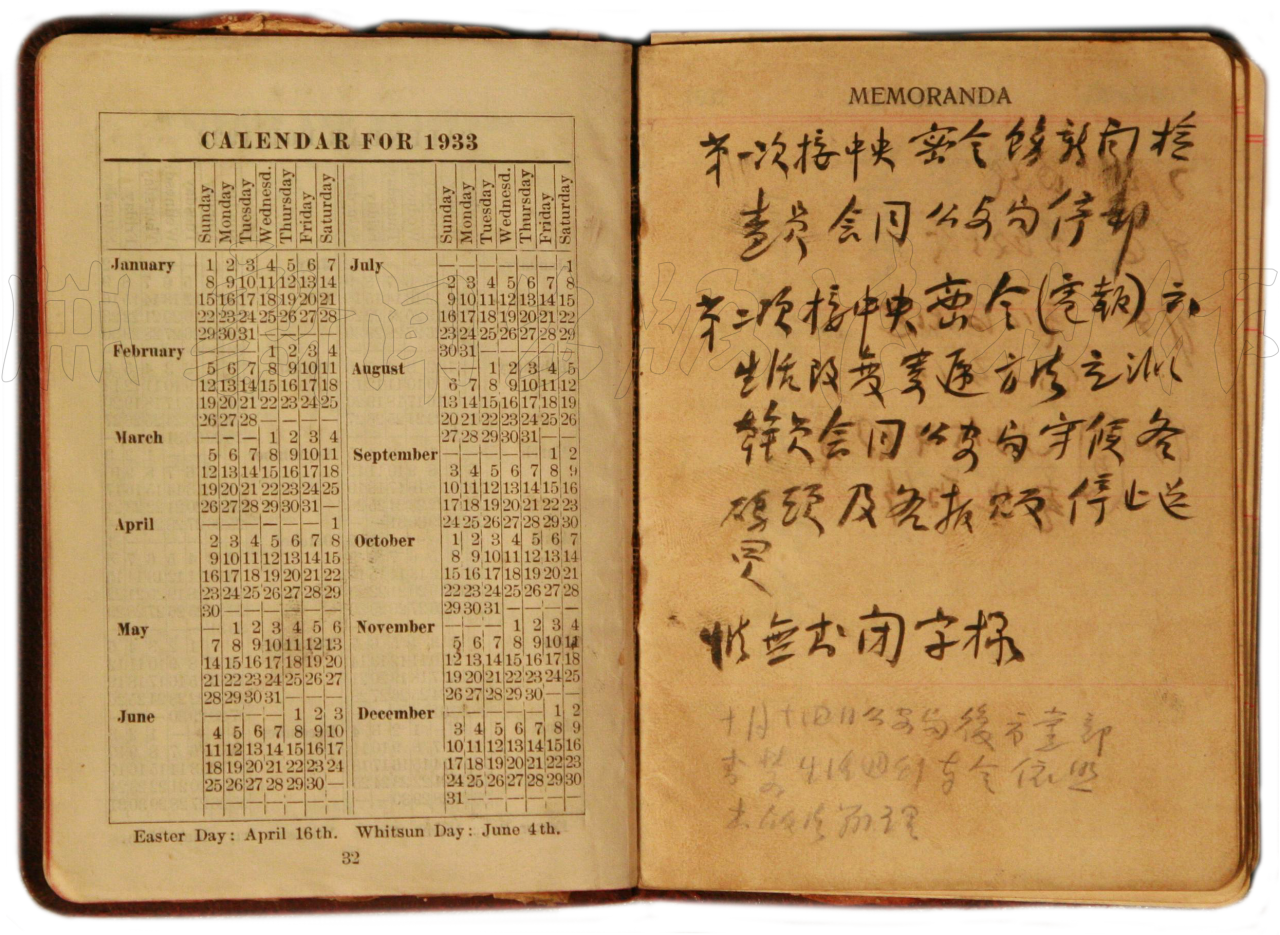 CALENDAR FOR 1933
Sunday Monday Tuesday Wednesd. Thursday Friday Saturday
January 1 2 3 4 5 6 7
8 9 10 11 12 13 14
15 16 17 18 19 20 21
22 23 24 25 26 27 28
29 30 31 — — — —
February — — — 1 2 3 4
5 6 7 8 9 10 11
12 13 14 15 16 17 18
19 20 21 22 23 24 25
26 27 28 — — — —
March — — — 1 2 3 4
5 6 7 8 9 10 11
12 13 14 15 16 17 18
19 20 21 22 23 24 25
26 27 28 29 30 31 —
April — — — — — — 1
2 3 4 5 6 7 8
9 10 11 12 13 14 15
16 17 18 19 20 21 22
23 24 25 26 27 28 29
30 — — — — — —
May — 1 2 3 4 5 6
7 8 9 10 11 12 13
14 15 16 17 18 19 20
21 22 23 24 25 26 27
28 29 30 31 — — —
June — — — — 1 2 3
4 5 6 7 8 9 10
11 12 13 14 15 16 17
18 19 20 21 22 23 24
25 26 27 28 29 30 —
— — — — — — —
Sunday Monday Tuesday Wednesd. Thursday Friday Saturday
July — — — — — — 1
2 3 4 5 6 7 8
9 10 11 12 13 14 15
16 17 18 19 20 21 22
23 24 25 26 27 28 29
30 31 — — — — —
August — — 1 2 3 4 5
6 7 8 9 10 11 12
13 14 15 16 17 18 19
20 21 22 23 24 25 26
27 28 29 30 31 — —
September — — — — — 1 2
3 4 5 6 7 8 9
10 11 12 13 14 15 16
17 18 19 20 21 22 23
24 25 26 27 28 29 30
October 1 2 3 4 5 6 7
8 9 10 11 12 13 14
15 16 17 18 19 20 21
22 23 24 25 26 27 28
29 30 31 — — — —
November — — — 1 2 3 4
5 6 7 8 9 10 11
12 13 14 15 16 17 18
19 20 21 22 23 24 25
26 27 28 29 30 — —
December — — — — — 1 2
3 4 5 6 7 8 9
10 11 12 13 14 15 16
17 18 19 20 21 22 23
24 25 26 27 28 29 30
31 — — — — — —
Easter Day: April 16th. Whitsun Day: June 4th.
32
MEMORANDA
第一次接中央密令飭新聞檢
查員會同公安局停郵
第二次接中央密令(電報)云
生活改變寄遞方法立派
幹員會同公安局守候各
碼頭及各報販停止送
惟無封閉字樣
十月十四日公安局後方黨部
生活 命令依照
出版法辦理